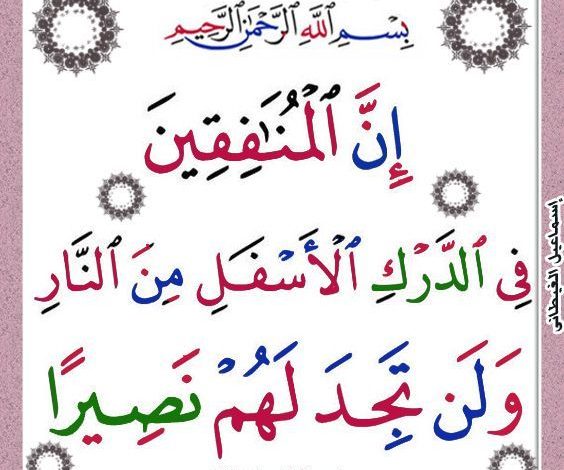 بِسْمِ اللَّهِ الرَّحْمَٰنِ الرَّحِيمِ
إِنَّ ٱلْمُنَٰفِقِينَ
فِى ٱلدَّرْكِ ٱلْأَسْفَلِ مِنَ ٱلنَّارِ
وَلَن تَجِدَ لَهُمْ نَصِيرًا
إسماعيل الغيطانى